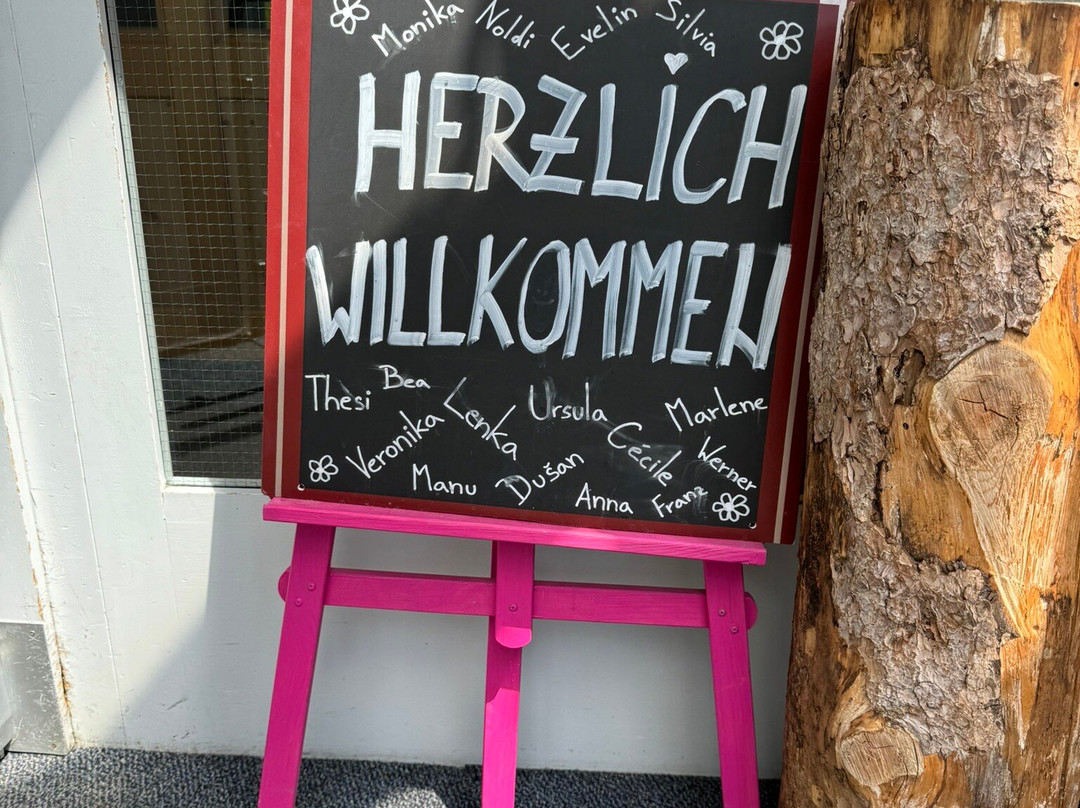 Monika Noldi Evelin Silvia
HERZLICH
WILLKOMMEN
Thesi Bea Lenka Ursula Marlene
Veronika Cécile Werner
Manu Dušan Anna Franz